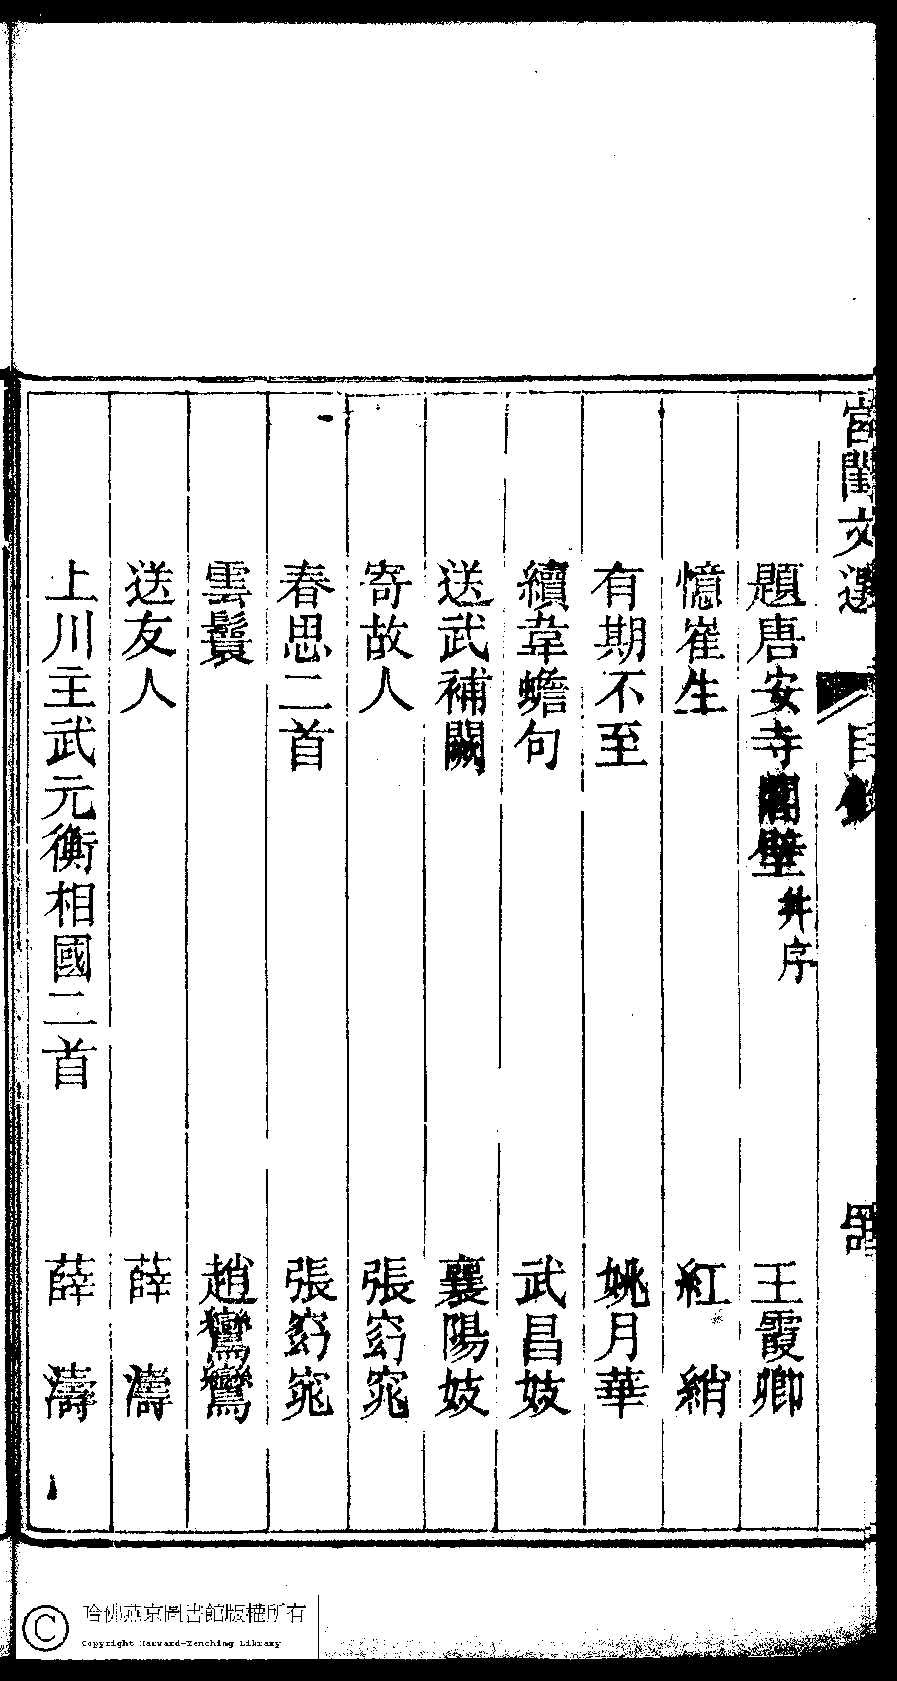 宮閨文選 目錄 四
題唐安寺閣壁 并序 王霞卿
憶崔生 紅綃
有期不至 姚月華
續韋蟾句 武昌妓
送武補闕 襄陽妓
寄故人 張窈窕
春思二首 張窈窕
雲鬟 趙鸞鸞
送友人 薛濤
上川主武元衡相國二首 薛濤
哈佛燕京圖書館版權所有
Copyright Harvard-Yenching Library